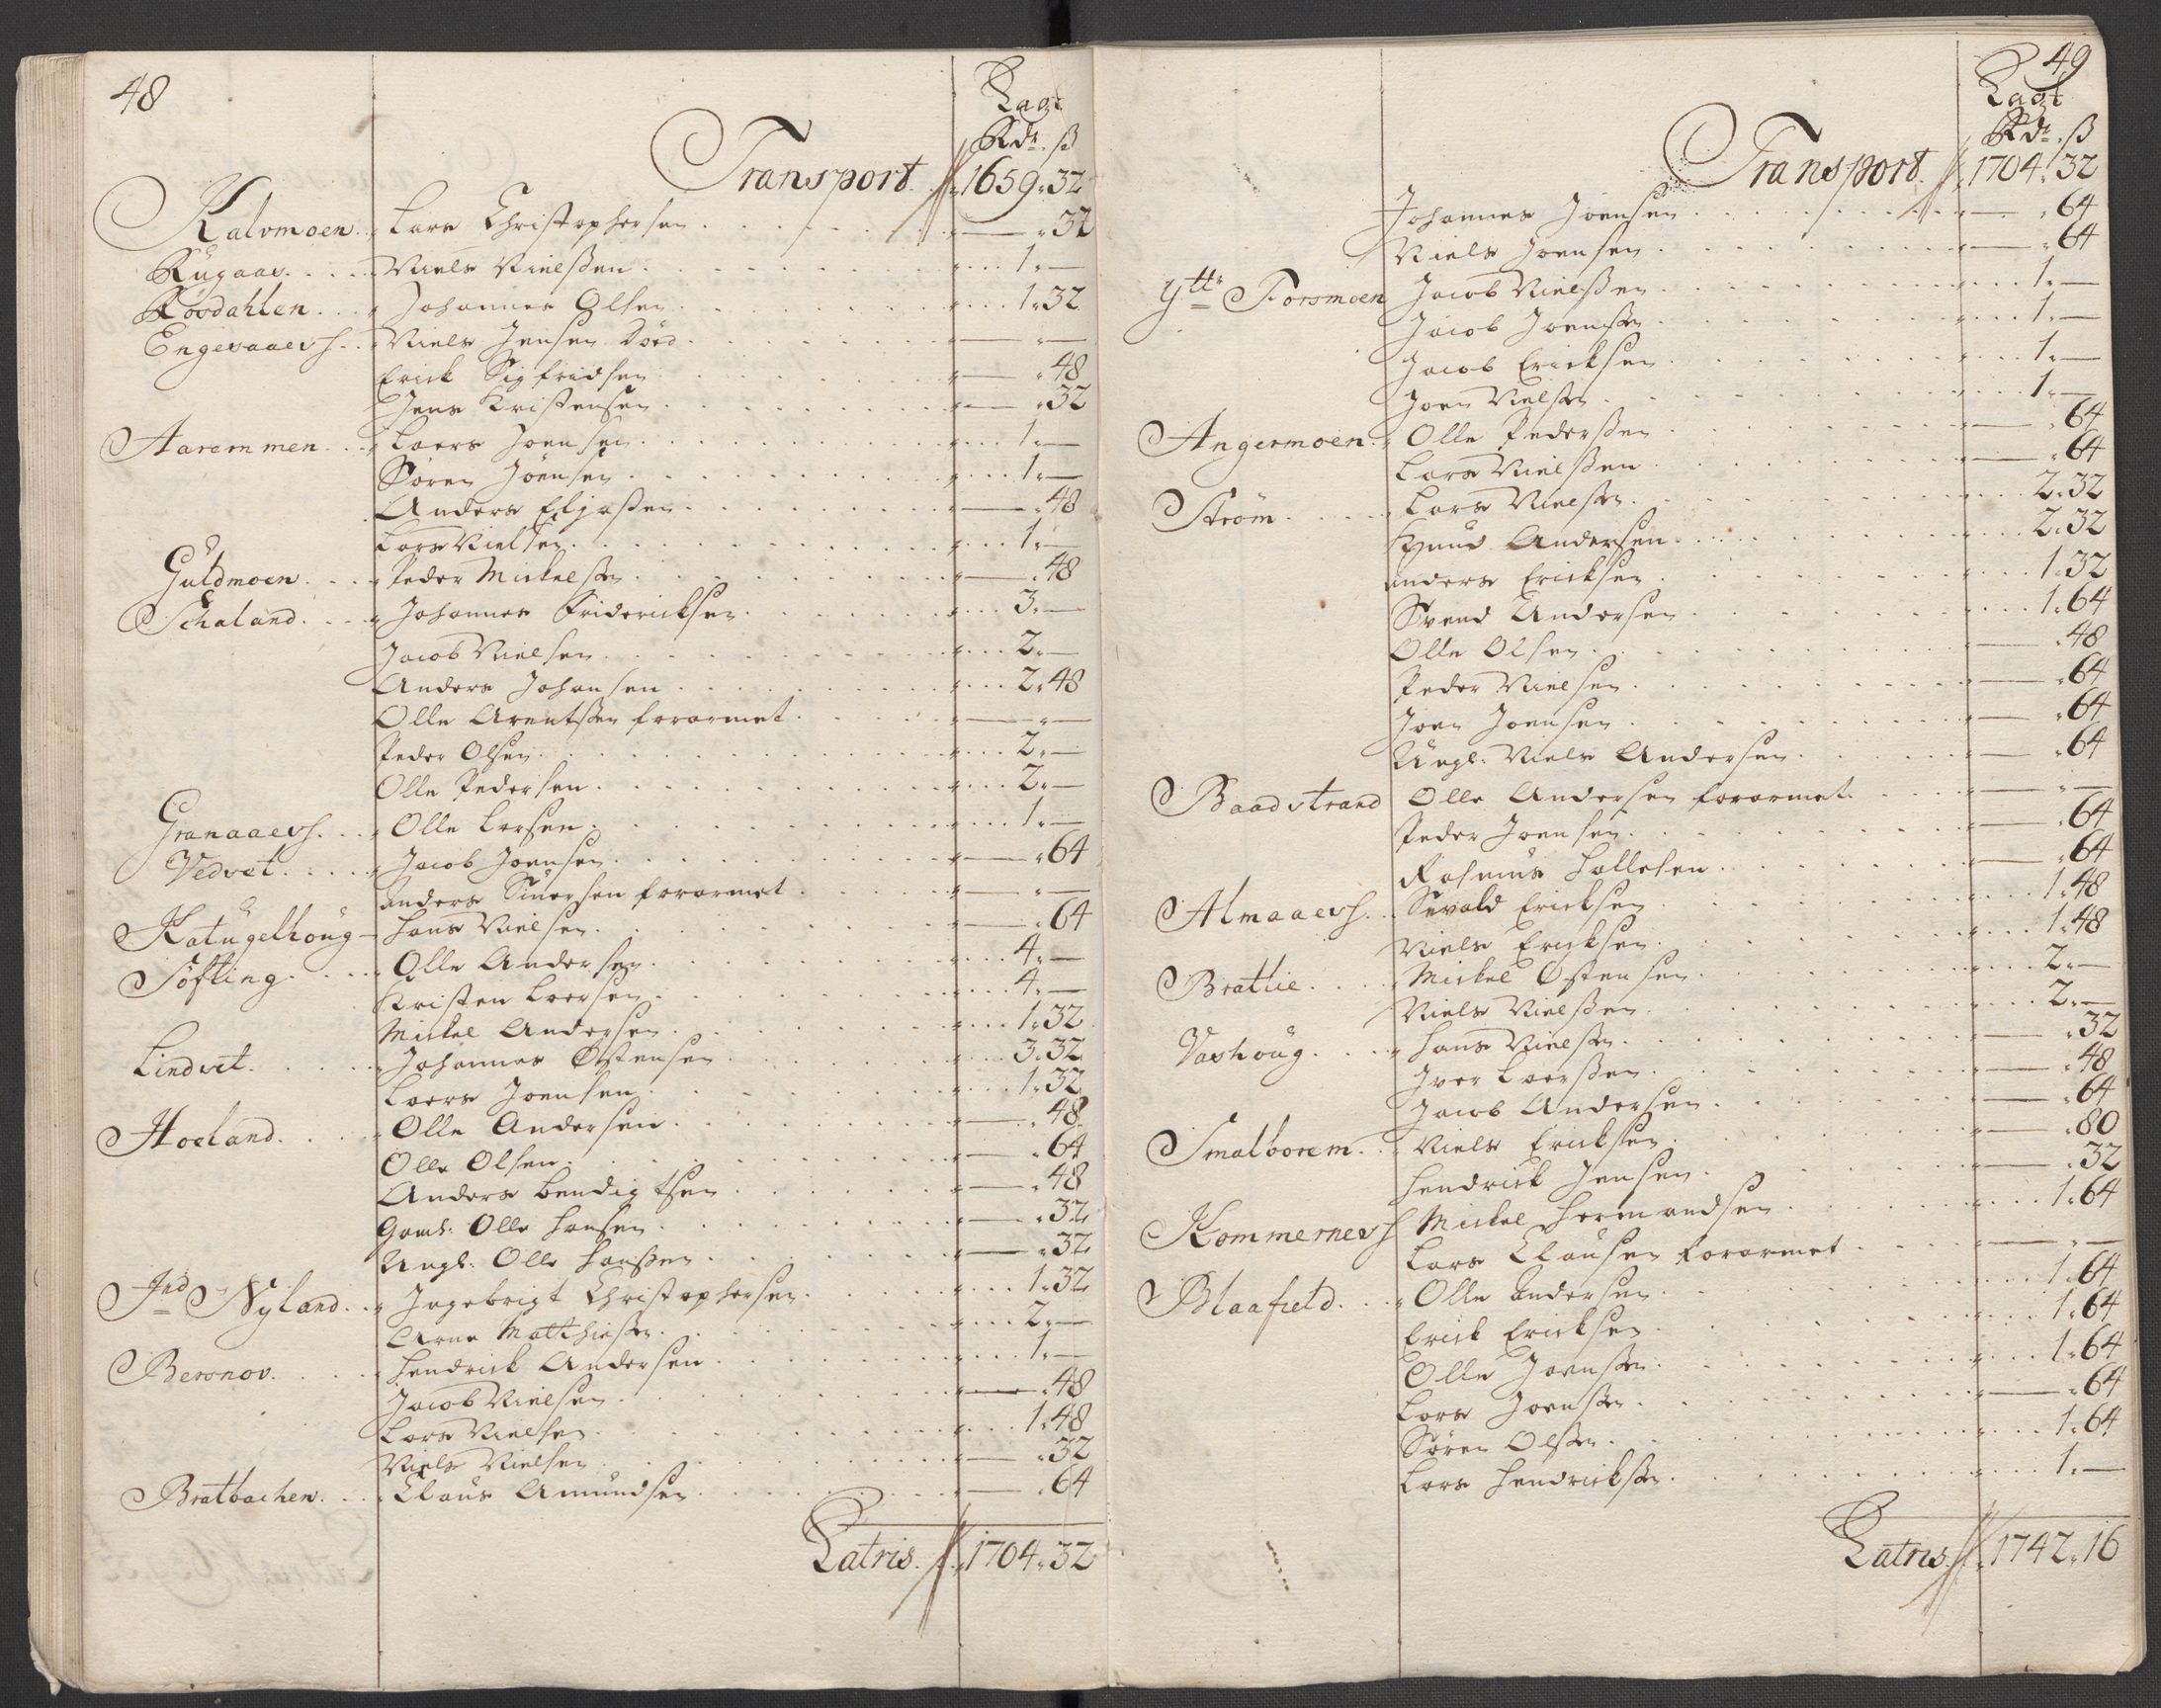 48
Lagt
Rdr. ß
Transport. 1659. 32
Kalvmoen. Lars Christophersen. — . 32
Rugaas. Niels Nielßen. 1. —
Røsdahlen. Johannes Olsen. 1. 32
Engesaaesh. Niels Jensen Død. — . —
Erick Sigfridsen — . 48
Jens Kristensen — . 32
Aaremmen. Laers Joensen 1. —
Søren Joensen 1. —
Anders Eljaßen — . 48
Lars Nielsen. 1. —
Guldmoen. Peder Mickelßen — . 48
Schaland. Johannes Fridericksen. 3. —
Jacob Nielsen 2. —
Anders Johansen 2. 48
Olle Arentßen forarmet — . —
Peder Olsen. 2. —
Olle Pedersen. 2. —
Granaaesh. Olle Larsen. 1. —
Vedvet. Jacob Joensen — . 64
Anders Siuersen forarmet — . —
Katugelhoug Hans Nielsen — . 64
Søfting. Olle Andersen 4. —
Kristen Larsen 4. —
Mickel Andersen 1. 32
Lindvet. Johannes Østensen 3. 32
Laers Joensen 1. 32
Hoeland. Olle Andersen — . 48
Olle Olsen — . 64
Anders Bendigtsen — . 48
Gaml: Olle Hansen — . 32
Ungl: Olle Hanßen — . 32
Ind Nyland. Ingebrigt Christophersen 1. 32
Arne Matthiaßen 2. —
Beronov. Hendrick Andersen 1. —
Jacob Nielsen — . 48
Lars Nielsen 1. 48
Niels Nielsen — . 32
Bratbachen. Claus Amundsen — . 64
Latris. 1704. 32
49
Lagt
Rdr. ß
Transport. 1704. 32
Johannes Joensen — . 64
Niels Joensen — . 64
Ytt: Forsmoen Jacob Nielßen 1. —
Jacob Joenßen 1. —
Jacob Ericksen 1. —
Joen Nielßen 1. —
Angermoen. Olle Pederßen — . 64
Lars Nielßen — . 64
Strøm. Lars Nielßen 2. 32
Knud Andersen 2. 32
Anders Ericksen 1. 32
Svend Andersen 1. 64
Olle Olsen — . 48
Peder Nielsen — . 64
Joen Joensen — . 64
Ungl. Niels Andersen — . 64
Baadstrand Olle Andersen forarmet — . —
Peder Joensen — . 64
Rasmus Hallesen — . 64
Almaaesh. Sivald Ericksen 1. 48
Niels Ericksen 1. 48
Brattlie. Mickel Østensen 2. —
Niels Nielßen 2. —
Vashoug. Hans Nielßen — . 32
Iver Laerßen — . 48
Jacob Andersen — . 64
Smalborem. Niels Ericksen — . 80
Hendrick Jensen — . 32
Kommernesh Mickel Hermandsen 1. 64
Lars Clausen forarmet — . —
Blaafield. Olle Andersen 1. 64
Erick Ericksen 1. 64
Olle Joenßen 1. 64
Lars Joenßen — . 64
Søren Olßen 1. 64
Lars Hendrickßen 1. —
Latris. 1742. 16